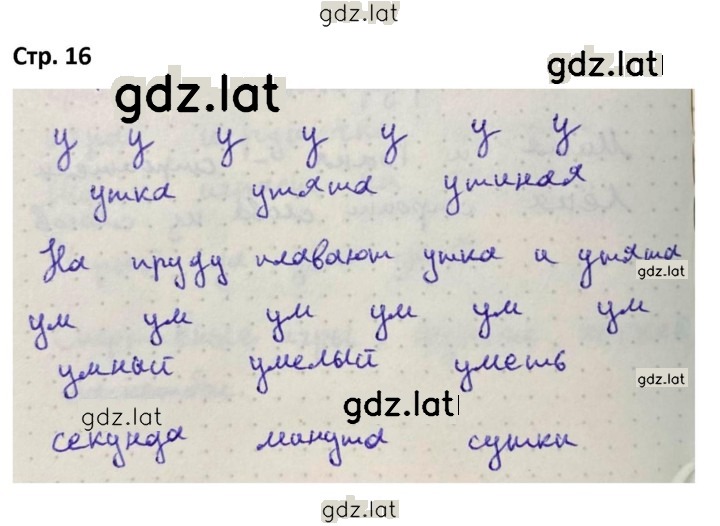 gdz.lat
Стр. 16
gdz.lat
gdz.lat
у у у у у у у
утка утята утиная
На пруду плавают утка и утята
gdz.lat
ум ум ум ум ум ум
умный умелый уметь
gdz.lat
gdz.lat
gdz.lat
секунда минута сутки
gdz.lat